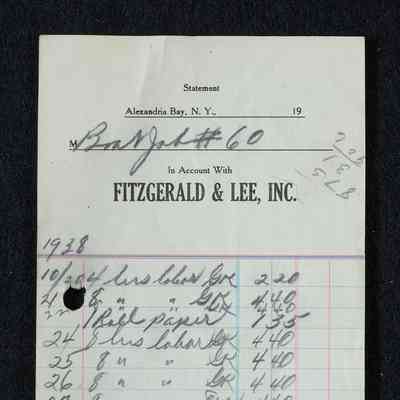 Statement
Alexandria Bay, N. Y., 19
M Boat Job # 60
In Account With
FITZGERALD & LEE, INC.
1938
10/20 4 hrs labor GR 2 20
21 8 " " GR 4 40
22 8 4 40
1 Roll paper 1 35
24 8 hrs labor GR 4 40
25 8 " " GR 4 40
26 8 " " GR 4 40